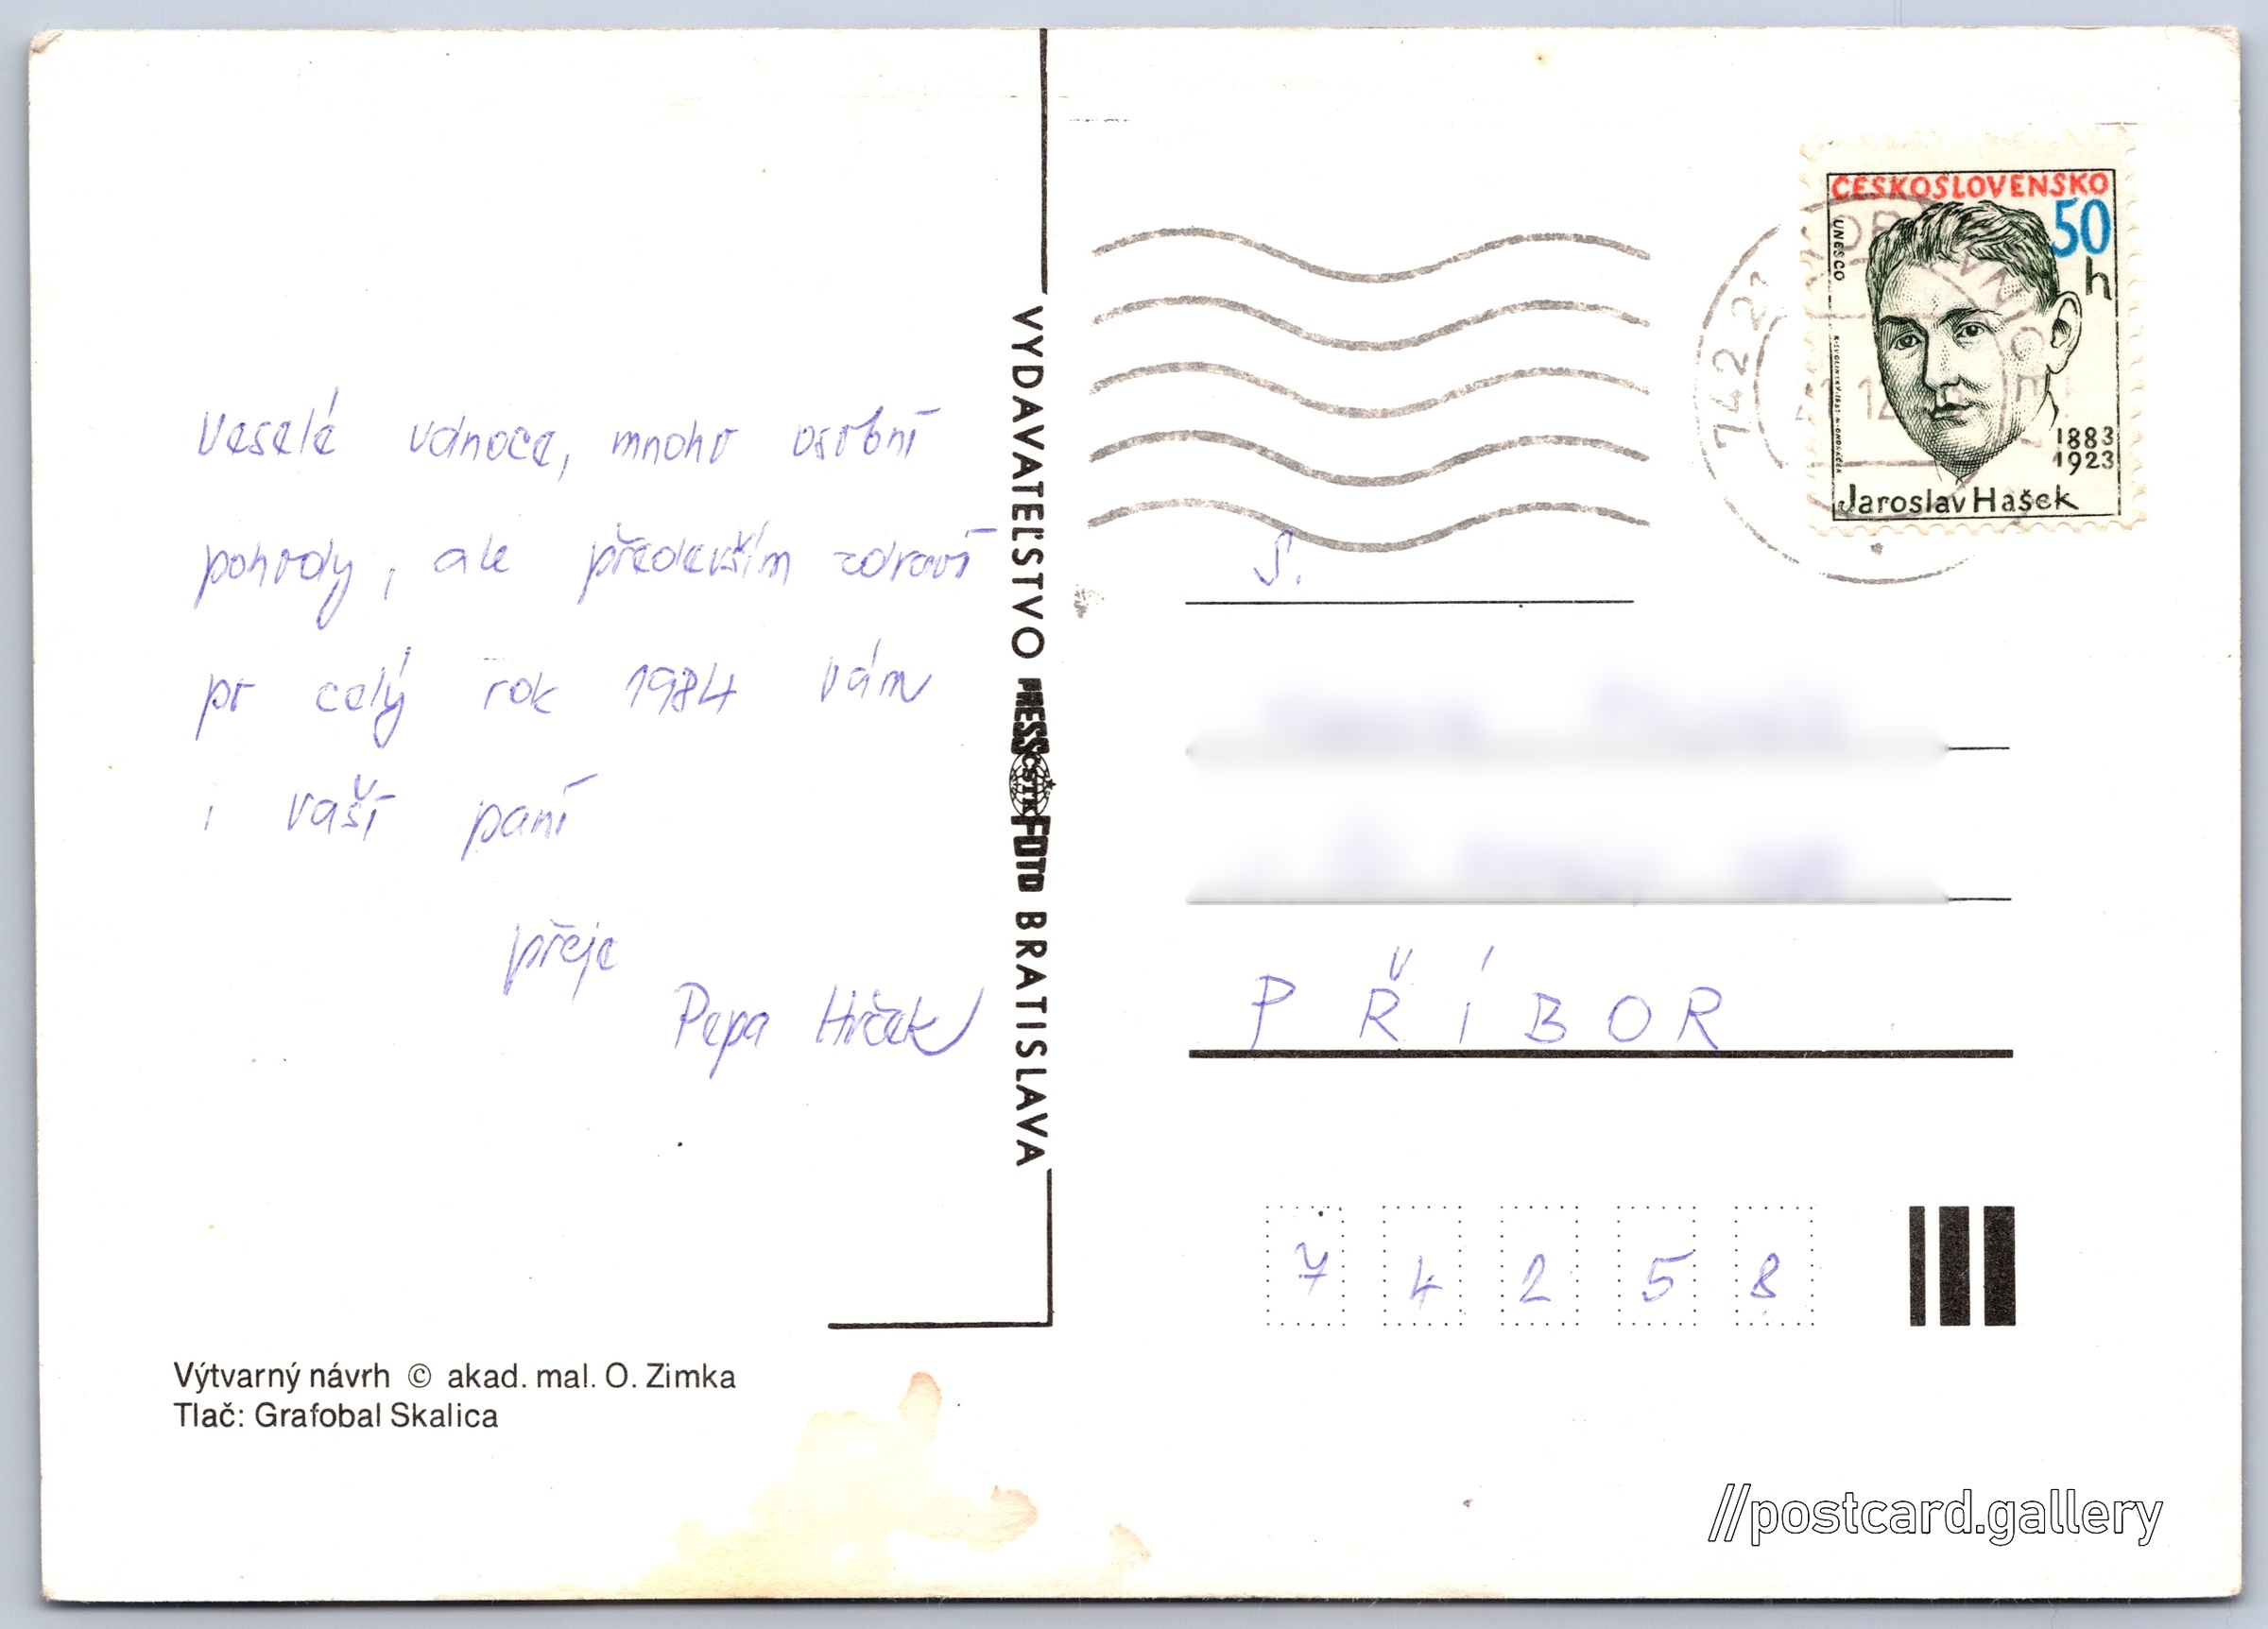 Veselé vánoce, mnoho osobní
pohody, ale především zdraví
po celý rok 1984 Vám
i vaší paní
přeje
Pepa Hrček
Výtvarný návrh © akad. mal. O. Zimka
Tlač: Grafobal Skalica
VYDAVATEĽSTVO PRESSFOTO BRATISLAVA
ČSTK
ČESKOSLOVENSKO
50
h
UNESCO
1883
1923
Jaroslav Hašek
742 2
S.
PŘÍBOR
7 4 2 5 8
//postcard.gallery